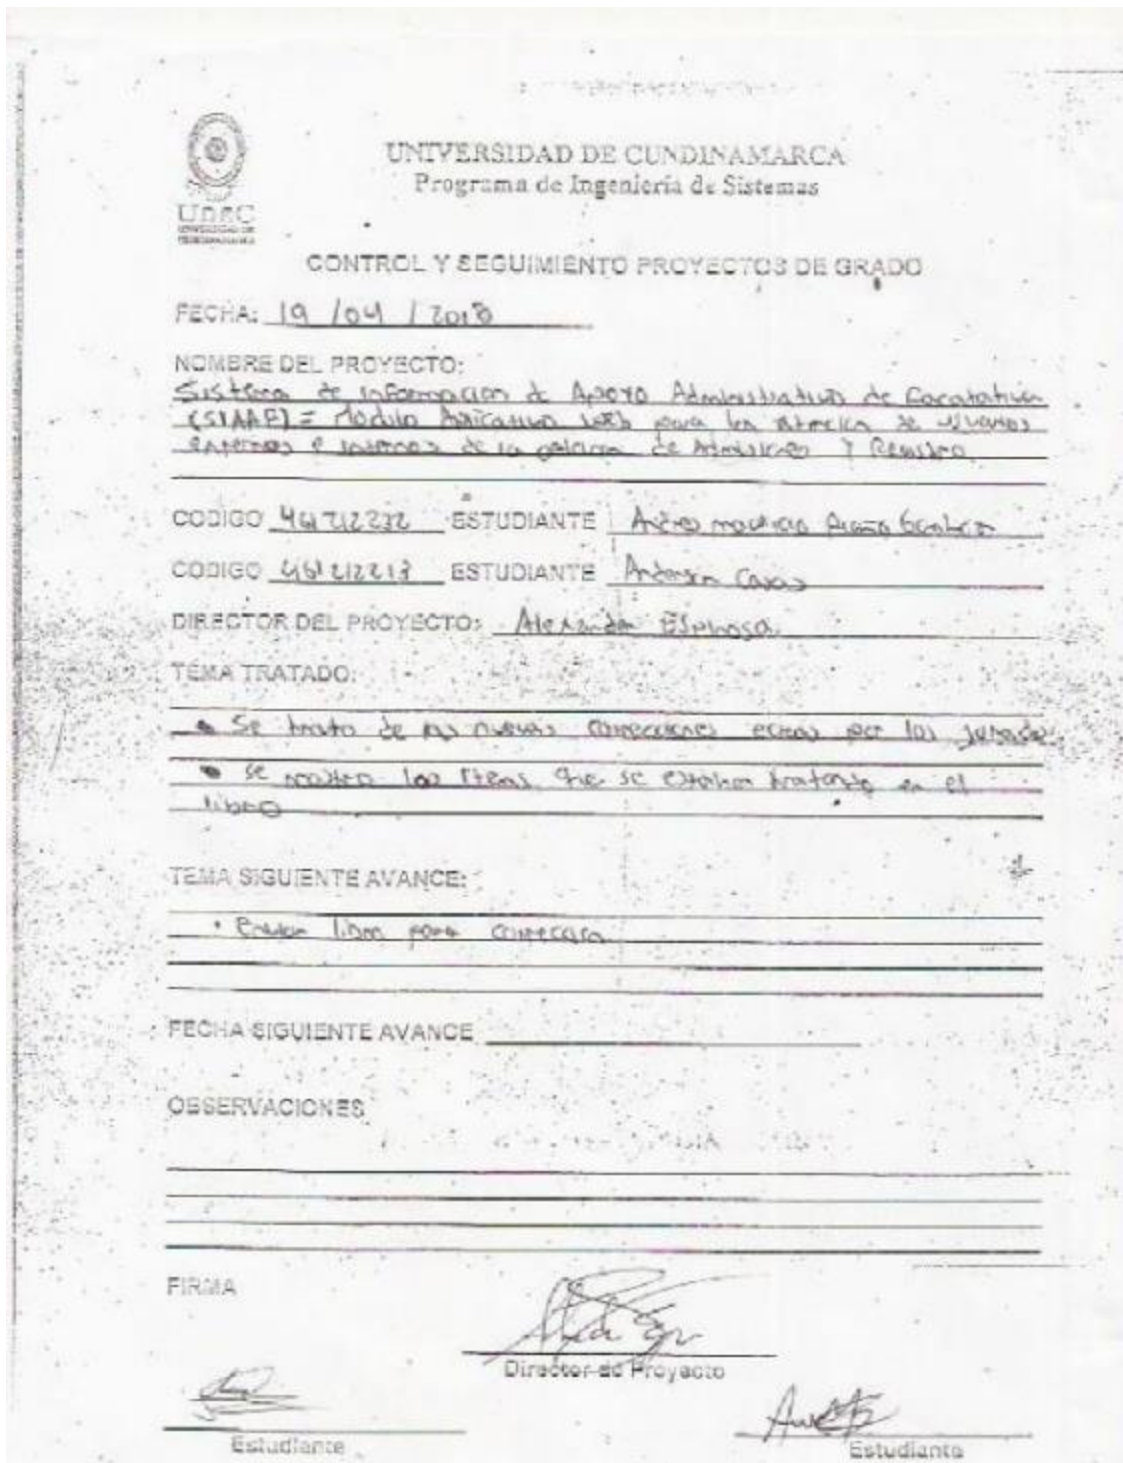 UNIVERSIDAD DE CUNDINAMARCA
Programa de Ingeniería de Sistemas
UDEC
UNIVERSIDAD DE
CUNDINAMARCA
CONTROL Y SEGUIMIENTO PROYECTOS DE GRADO
FECHA: 19 / 04 / 2018
NOMBRE DEL PROYECTO:
Sistema de informacion de Apoyo Administrativo de Facatativa
(SIAAF) = Modulo Aplicativo Web para la atencion de usuarios
externos e internos de la oficina de Admisiones Y Registro
CODIGO 461212232 ESTUDIANTE Andres mauricio
CODIGO 461212213 ESTUDIANTE Anderson Casas
DIRECTOR DEL PROYECTO: Alexander Espinosa.
TEMA TRATADO:
• Se trato de las nuevas correcciones echas por los jurados.
• se los items que se estaban tratando en el
libro
TEMA SIGUIENTE AVANCE:
• Enviar libro para correccion
FECHA SIGUIENTE AVANCE
OBSERVACIONES
FIRMA
Director de Proyecto
Estudiante
Estudiante